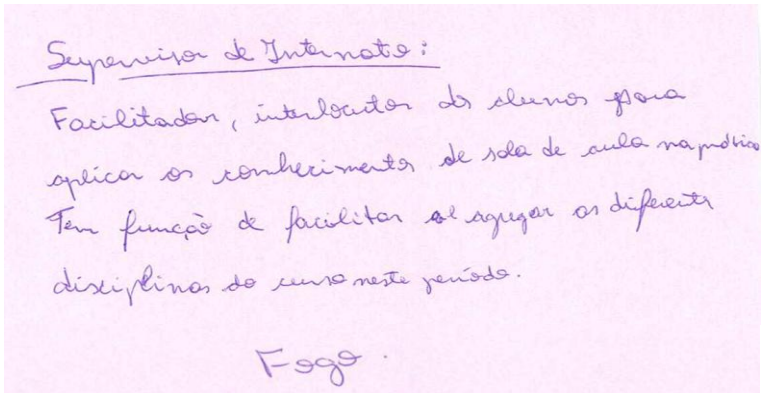 Supervisor de Internato:
Facilitador, interlocutor dos alunos para
aplicar os conhecimentos de sala de aula na prática
Tem função de facilitar e agregar as diferentes
disciplinas do curso neste período.
Fogo.